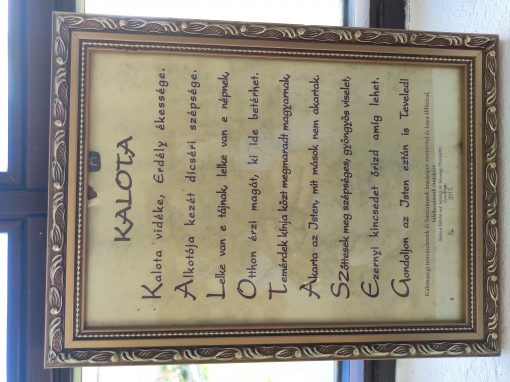 KALOTA
Kalota vidéke, Erdély ékessége.
Alkotója kezét dícséri szépsége.
Lelke van e tájnak, lelke van e népnek,
Otthon érzi magát, ki ide betérhet.
Temérdek kínja közt megmaradt magyarnak,
Akarta az Isten, mit mások nem akartak.
Szőttesek meg szépséges, gyöngyös viselet,
Ezernyi kincsedet őrizd amíg lehet.
Gondoljon az Isten eztán is Teveled!
2015.